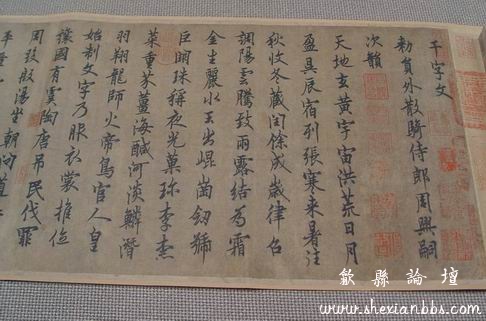 千字文
勑員外散騎侍郎周興嗣
次韻
天地玄黃宇宙洪荒日月
盈昃辰宿列張寒来暑往
秋收冬藏閏餘成歲律召
調陽雲騰致雨露結為霜
金生麗水玉出崐崗劒號
巨闕珠稱夜光菓珎李柰
菜重芥薑海醎河淡鱗潛
羽翔龍師火帝鳥官人皇
始制文字乃服衣裳推位
讓國有虞陶唐吊民伐罪
周發殷湯坐朝問道
歙縣論壇
www.shexianbbs.com